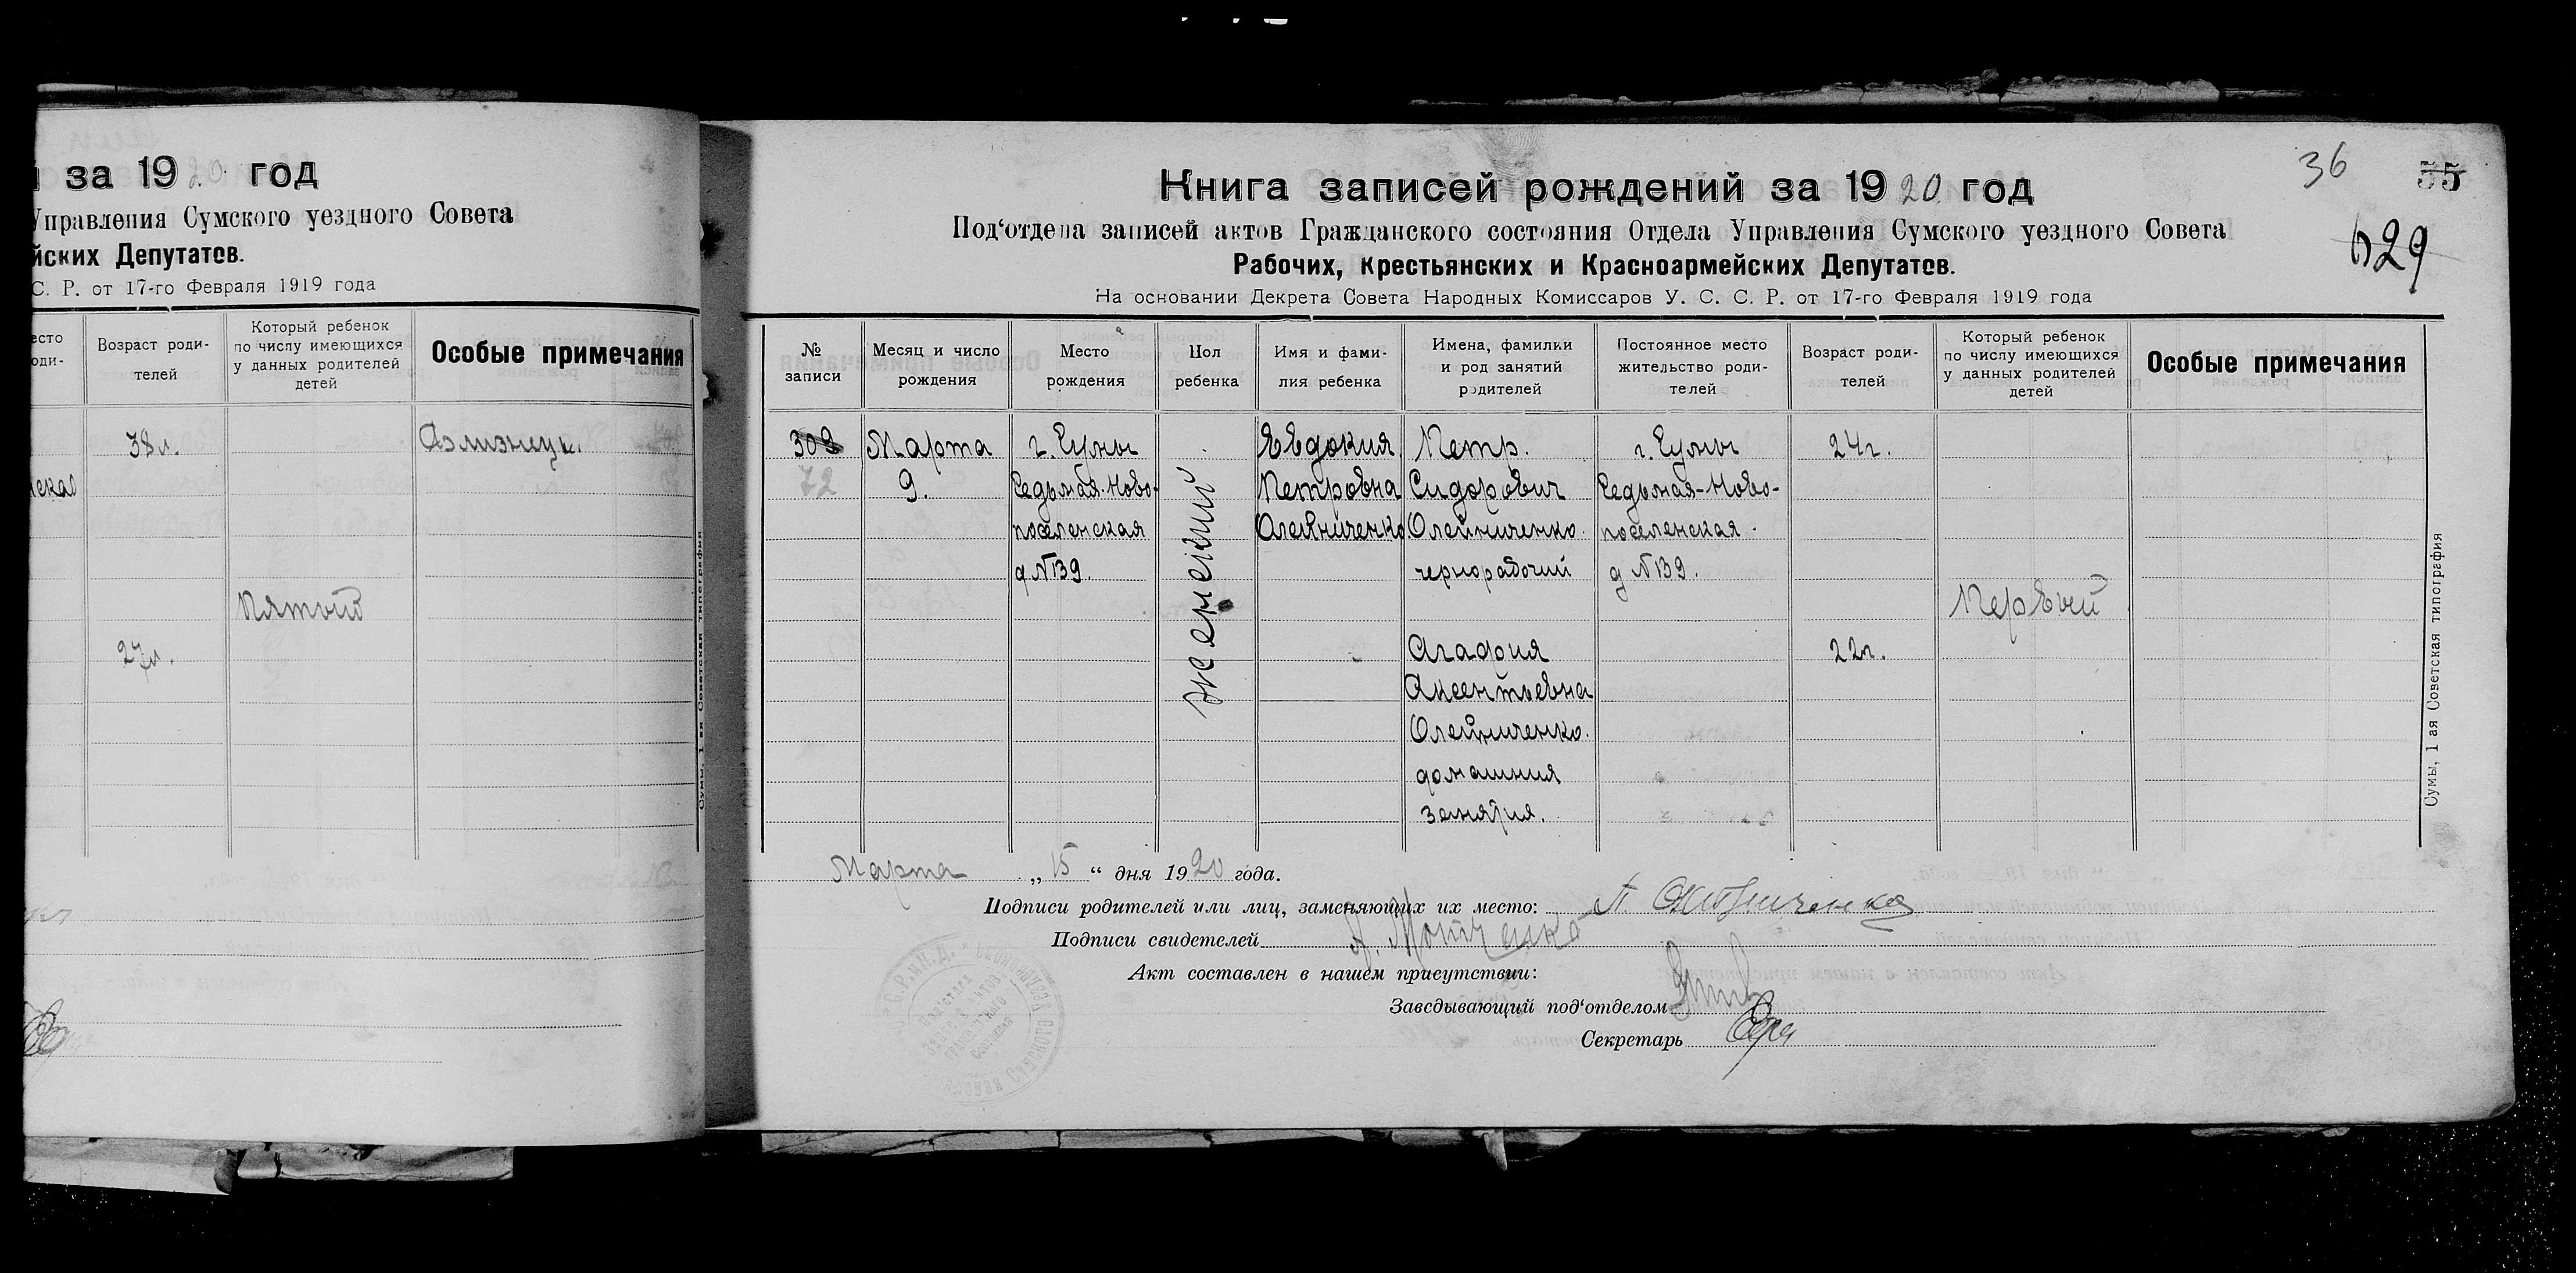 за 1920 год
Управления Сумского уездного Совета
йских Депутатов.
С. Р. от 17-го Февраля 1919 года
есто
оди-
Возраст роди-
телей
Который ребенок
по числу имеющихся
у данных родителей
детей
Особые примечания
38 л.
Близнецы.
Пятый
27 л.
Сумы, 1 ая Советская типография
36
55
529
Книга записей рождений за 1920 год
Под‘отдела записей актов Гражданского состояния Отдела Управления Сумского уездного Совета
Рабочих, Крестьянских и Красноармейских Депутатов.
На основании Декрета Совета Народных Комиссаров У. С. С. Р. от 17-го Февраля 1919 года
№
записи
Месяц и число
рождения
Место
рождения
Пол
ребенка
Имя и фами-
лия ребенка
Имена, фамилки
и род занятий
родителей
Постоянное место
жительство роди-
телей
Возраст роди-
телей
Который ребенок
по числу имеющихся
у данных родителей
детей
Особые примечания
72
Марта
9.
г. Сумы
Седьмая-Ново-
поселенская
д №139.
женский
Евдокия
Петровна
Олейниченко
Петр.
Сидорович
Олейниченко.
чернорабочий
Агафия
Аксентьевна
Олейниченко.
домашния
занятия.
г. Сумы
Седьмая-Ново-
поселенская.
д №139.
24 г.
22 г.
Первый
Сумы, 1 ая Советская типография
Марта „15“ дня 1920 года.
Подписи родителей или лиц, заменяющих их место: П. Олейниченко
Подписи свидетелей
Акт составлен в нашем присутствии:
Заведывающий под‘отделом
Секретарь